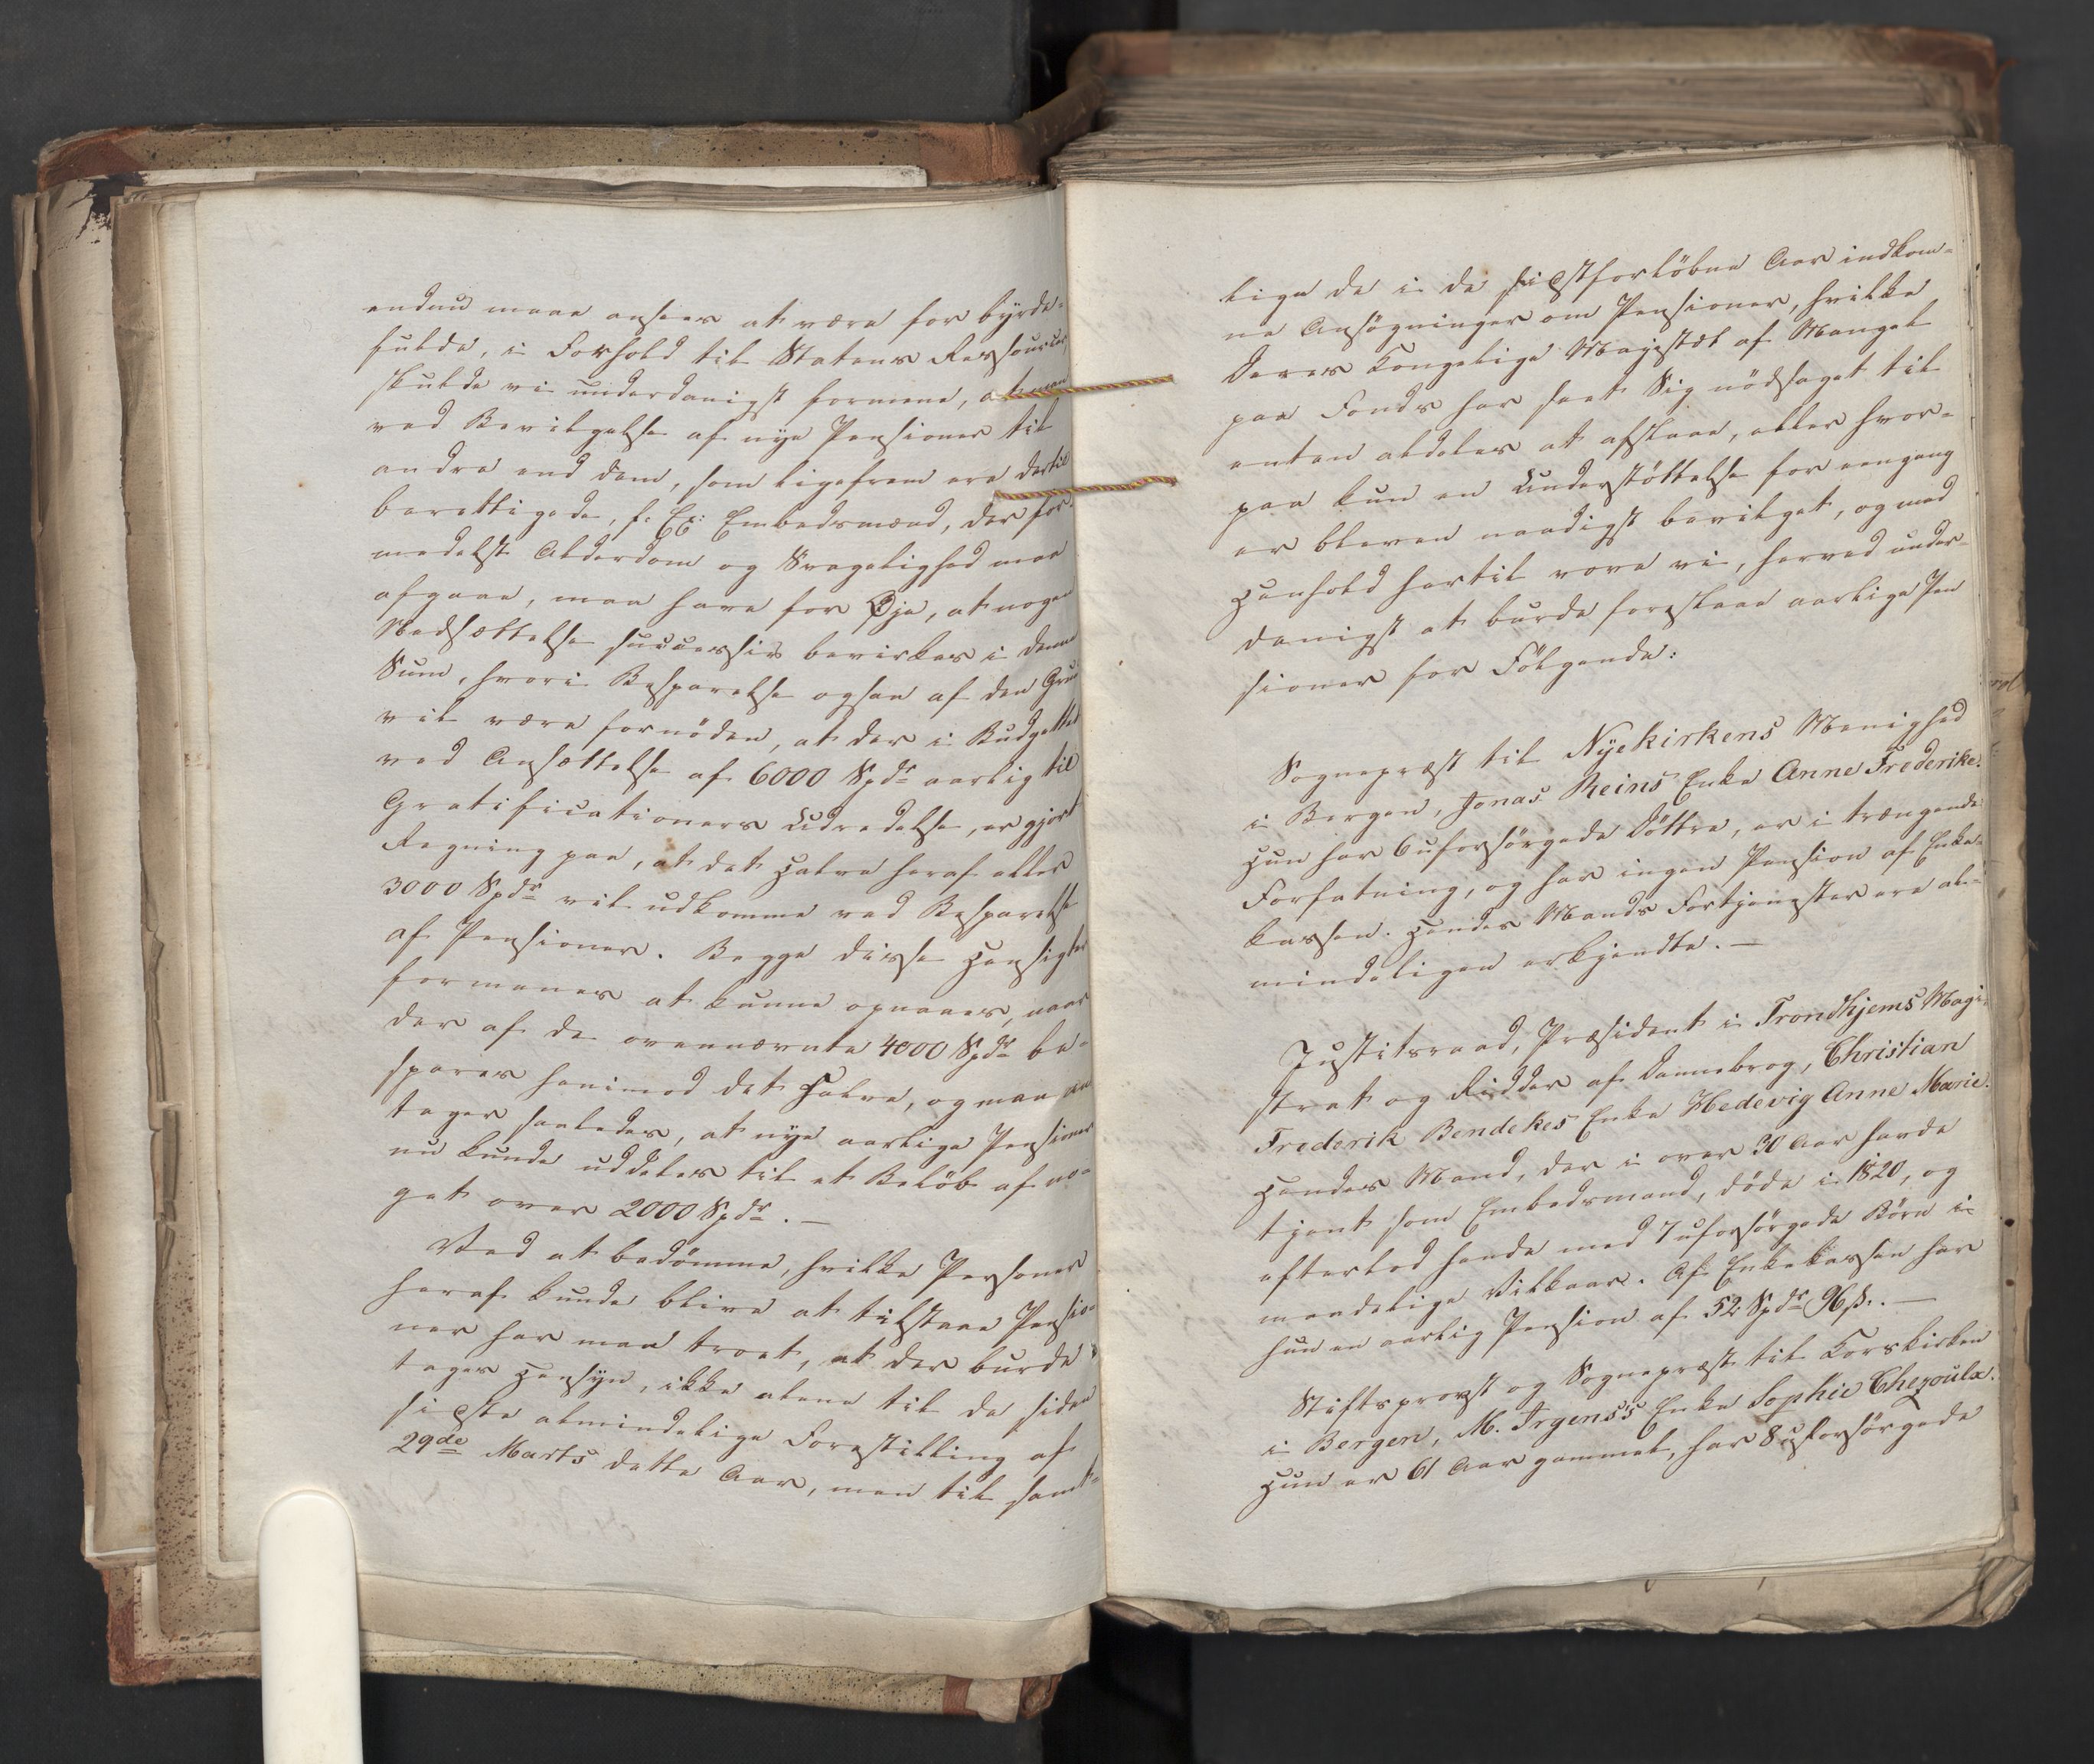 endnu maae ansees at være for byrde-
fulde, i Forhold til Statens Ressourcer,
skulde vi underdanigst formene, at man
ved Bevilgelse af nye Pensioner til
andre end dem, som ligefrem ere dertil
berettigede, f. Ex: Embedsmænd, der for-
medelst Alderdom og Svagelighed maae
afgaae, maa have for Øje, at nogen
Nedsættelse successiv bevirkes i denne
Sum, hvori Besparelse ogsaa af den Grund
vil være fornöden, at der i Budgettet
ved Ansættelse af 6000 Spdr aarlig til
Gratificationers Udredelse, er gjort
Regning paa, at det Halve heraf eller
3000 Spdr vil udkomme ved Besparelse
af Pensioner. Begge disse Hensigter
formenes at kunne opnaaes, naar
der af de ovennævnte 4000 Spdr be-
spares henimod det Halve, og man an
tager saaledes, at nye aarlige Pensioner
nu kunde uddeles til et Belöb af no-
get over 2000 Spdr. —
Ved at bedömme, hvilke Personer
heraf kunde blive at tilstaae Pensio-
ner har man troet, at der burde
tages Hensyn, ikke alene til de siden
sidste almindelige Forestilling af
29de Marts dette Aar, men til samt-
lige de i de sidstforlöbne Aar indkom-
ne Ansögninger om Pensioner, hvilke
Deres Kongelige Majestæt af Mangel
paa Fonds har seet Sig nödsaget til
enten aldeles at afslaae, eller hvor-
paa kun en Understöttelse for eengang
er bleven naadigst bevilget, og med
Henhold hertil vove vi, herved under-
danigst at burde foreslaae aarlige Pen
sioner for Fölgende:
Sognepræst til Nyekirkens Menighed
i Bergen, Jonas Reins Enke Anne Frederike.
Hun har 6 uforsörgede Döttre, er i trængende
Forfatning, og har ingen Pension af Enke-
kassen. Hendes Mands Fortjenester ere al-
mindeligen erkjendte. —
Justitsraad, Præsident i Trondhjems Magi-
strat og Ridder af Dannebrog, Christian
Frederik Bendekes Enke Hedevig Anne Marie.
Hendes Mand, der i over 30 Aar havde
tjent som Embedsmand, döde i 1820, og
efterlod hende med 7 uforsörgede Börn i
maadelige Vilkaar. Af Enkekassen har
hun en aarlig Pension af 52 Spdr 96 ß. —
Stiftsprovst og Sognepræst til Korskirken
i Bergen, M. Irgens's Enke Sophie Chezoulx.
Hun er 61 Aar gammel, har 8 uforsörgede